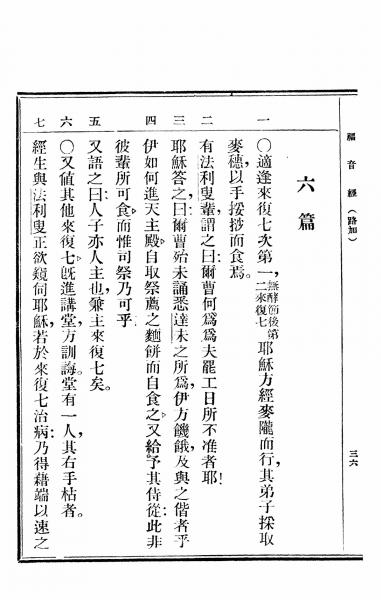 福音經（路加）
三六
六篇
一 〇適逢來復七次第一，無酵節後第二來復七耶穌方經麥隴而行，其弟子採取
麥穗，以手挼挱而食焉。
二 有法利叟輩，謂之曰：爾曹何爲爲夫罷工日所不准者耶！
三 耶穌答之曰：爾曹殆未誦悉達未之所爲，伊方饑餓，及與之偕者乎
四 伊如何進天主殿，自取祭薦之麵餅而自食之，又給予其侍從，此非
彼輩所可食，而惟司祭乃可乎
五 又語之曰：人子亦人主也，兼主來復七矣。
六 〇又值其他來復七，旣進講堂，方訓誨，堂有一人，其右手枯者。
七 經生與法利叟正欲窺伺耶穌，若於來復七治病，乃得藉端以速之